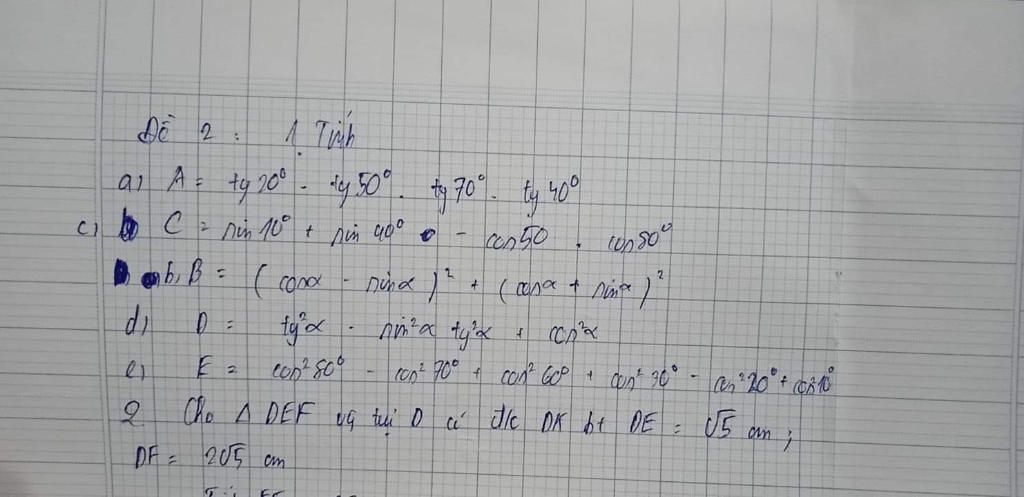 Đề 2 : 1. Tính
a) A = tg 20° . tg 50° . tg 70° . tg 40°
c) C = sin 10° + sin 40° - cos 50 . cos 80°
b, B = (cosα - sinα)² + (cosα + sinα)²
d) D = tg²α - sin²α tg²α + cos²α
e) E = cos² 80° - cos² 70° + cos² 60° + cos² 30° - cos² 20° + cos 10°
2 Cho Δ DEF vg tại D có đ/c DK bt DE = √5 cm ;
DF = 2√5 cm